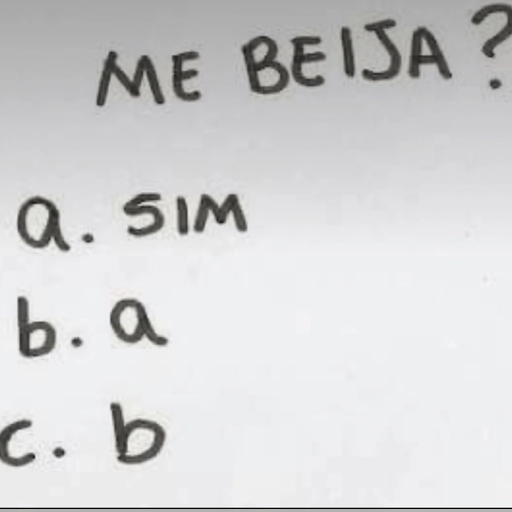 ME BEIJA?
a. SIM
b. a
c. b